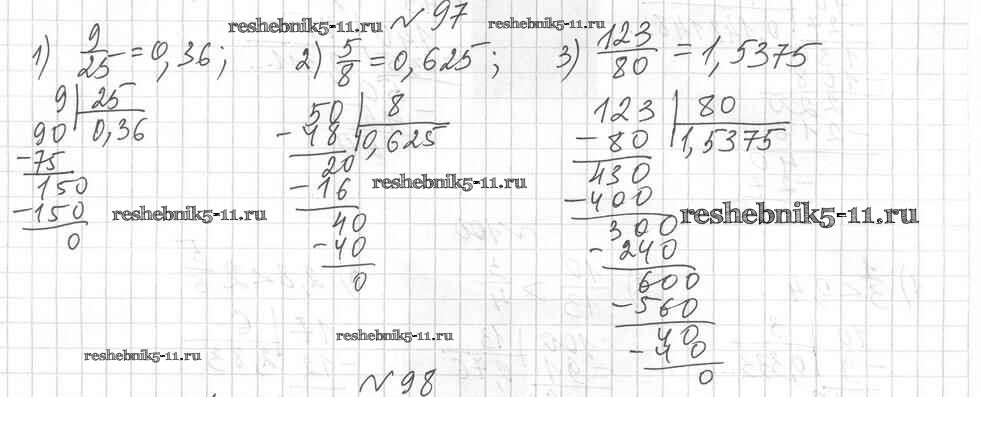 reshebnik5-11.ru № 97 reshebnik5-11.ru
1) 9/25 = 0,36; 2) 5/8 = 0,625; 3) 123/80 = 1,5375
9 | 25
90 0,36
-75
150
-150
0
50 | 8
-48 0,625
20
-16
40
-40
0
123 | 80
-80 1,5375
430
-400
300
-240
600
-560
40
-40
0
reshebnik5-11.ru
reshebnik5-11.ru
reshebnik5-11.ru
reshebnik5-11.ru
reshebnik5-11.ru
№ 98